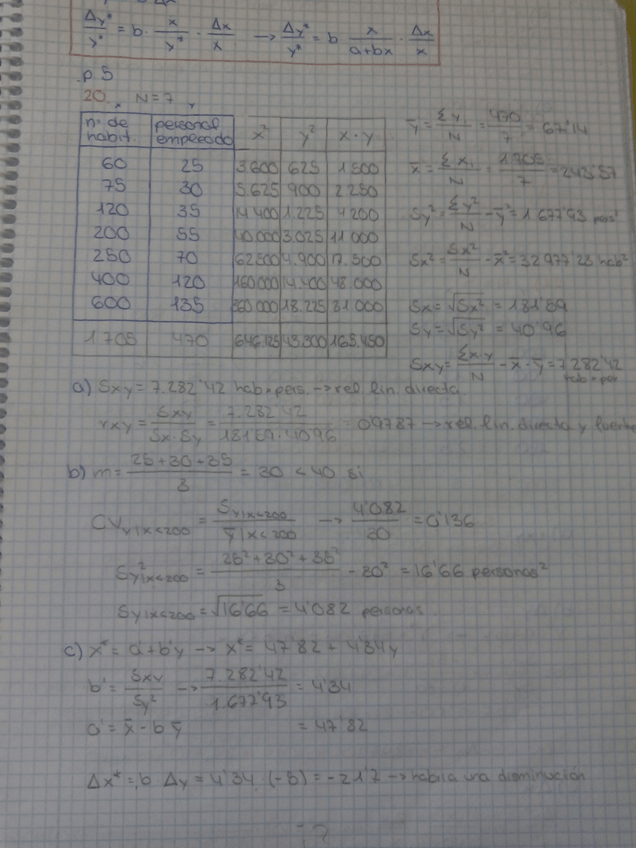 Δy* / y* = b · x / y* · Δx / x → Δy* / y* = b x / a+bx · Δx / x
p. 5
20. N=7,
nº de habit. personal empleado x² y² x·y
60 25 3.600 625 1.500
75 30 5.625 900 2.250
120 35 14.400 1.225 4.200
200 55 40.000 3.025 11.000
250 70 62.500 4.900 17.500
400 120 160.000 14.400 48.000
600 135 360.000 18.225 81.000
1.705 470 646.125 43.300 165.450
ȳ = Σyi / N = 470 / 7 = 67'14
x̄ = Σxi / N = 1.705 / 7 = 243'57
Sy² = Σy² / N - ȳ² = 1.677'93 pers²
Sx² = Sx² / N - x̄² = 32.977'28 hab²
Sx = √Sx² = 181'59
Sy = √Sy² = 40'96
Sxy = Σx·y / N - x̄·ȳ = 7.282'42 hab·per
a) Sxy = 7.282'42 hab·pers. → rel. lin. directa.
rxy = Sxy / Sx·Sy = 7.282'42 / 181'59·40'96 = 0'9787 → rel. lin. directa y fuerte
b) m = 25+30+35 / 3 = 30 < 40 si
CVy|x<200 = Sy|x<200 / ȳ|x<200 → 4'082 / 30 = 0'136
Sy²|x<200 = 25²+30²+35² / 3 - 30² = 16'66 personas²
Sy|x<200 = √16'66 = 4'082 personas.
c) x* = a'+b'y → x* = -47'82 + 4'34y
b' = Sxy / Sy² → 7.282'42 / 1.677'93 = 4'34
a' = x̄ - b ȳ = -47'82
Δx* = b Δy = 4'34 · (-5) = -21'7 → habría una disminución